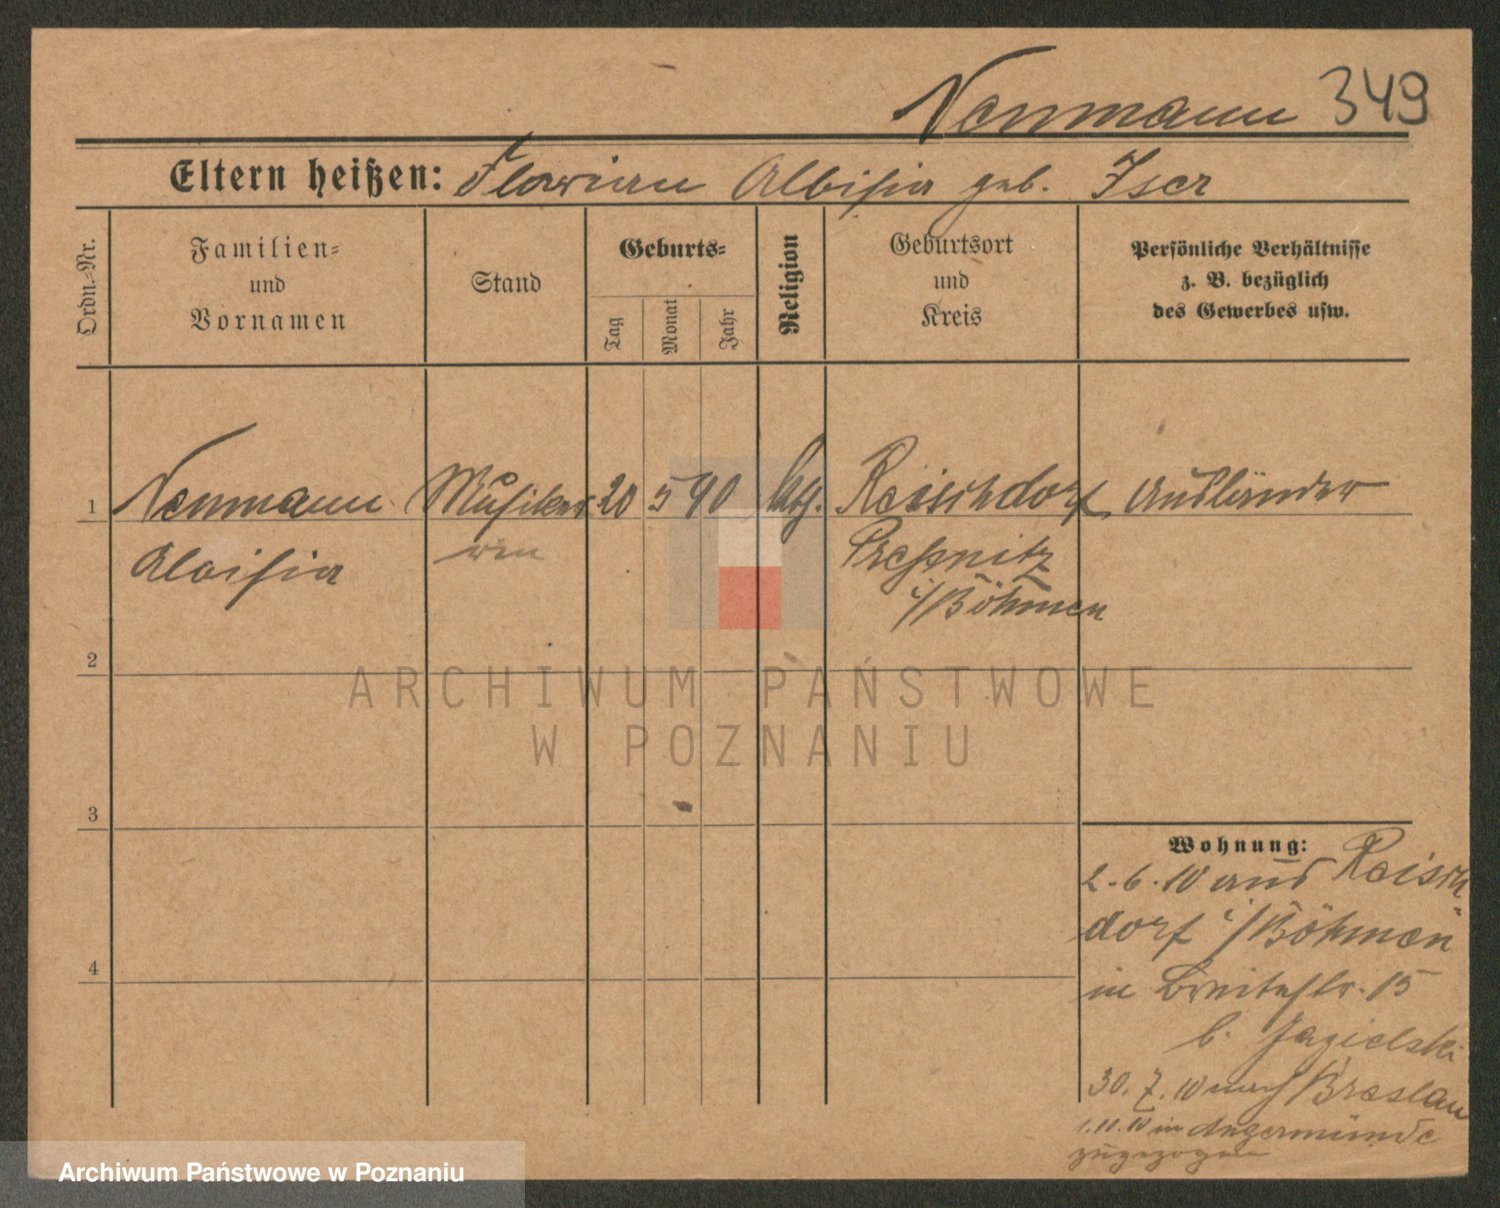 Neumann 349
Eltern heißen: Florian Aloisia geb. Iser
Ordn.-Nr.
Familien-
und
Vornamen
Stand
Geburts-
Tag
Monat
Jahr
Religion
Geburtsort
und
Kreis
Persönliche Verhältnisse
z. B. bezüglich
des Gewerbes usw.
1 Neumann Musiker 20 5 90 ktg. Reischdorf Ausländer
Aloisia rin Preßnitz
i/Böhmen
2
ARCHIWUM PAŃSTWOWE
W POZNANIU
3
Wohnung:
2.6.10 aus Reisch
dorf i/Böhmen
in Breitestr. 15
b. Jagielski
4
30.7.10 nach Breslau
1.11.10 in Angermünde
zugezogen
Archiwum Państwowe w Poznaniu